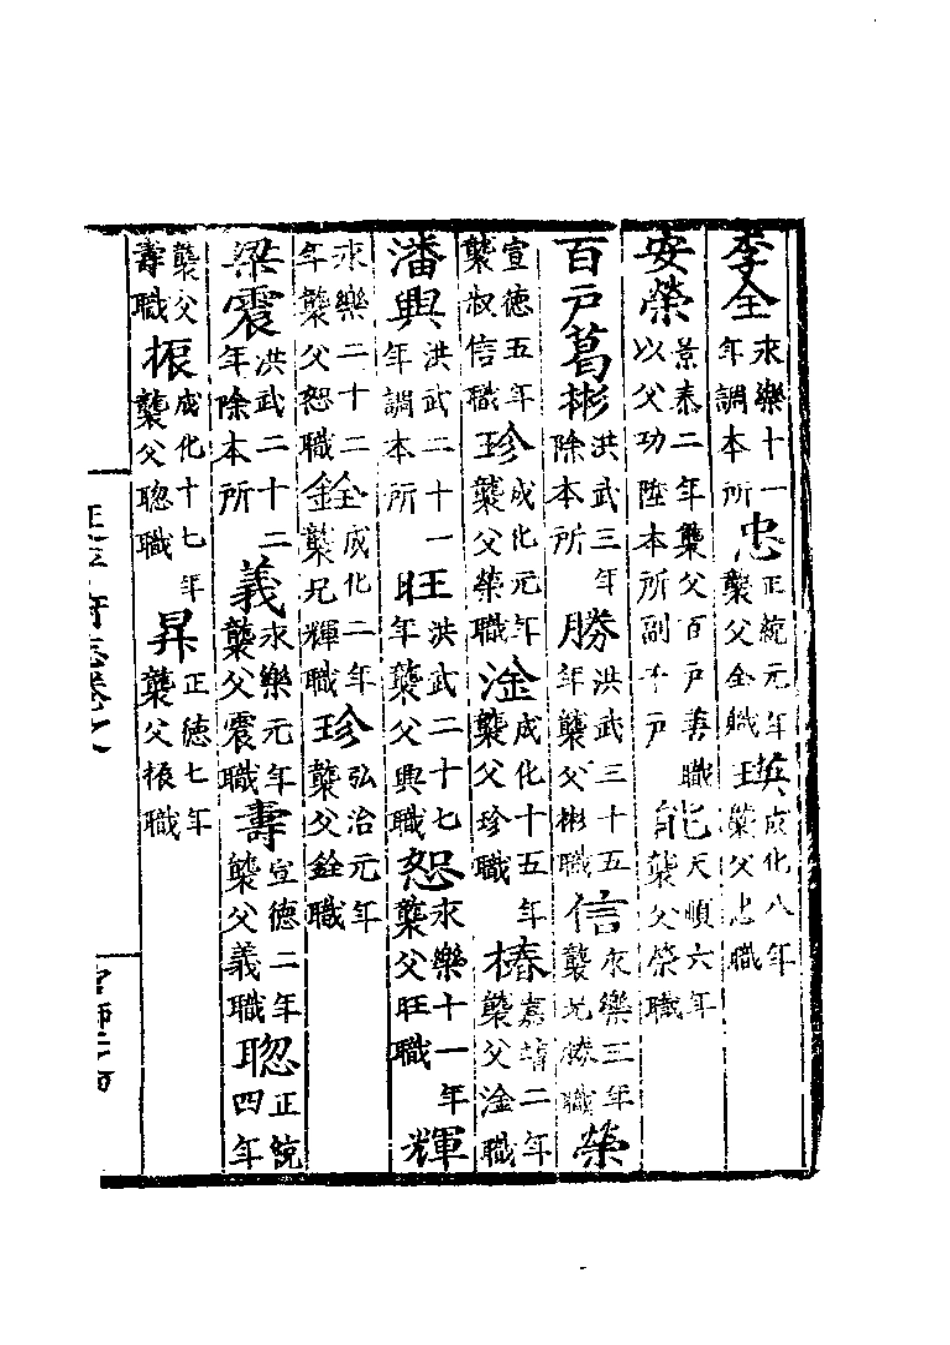 李全永樂十一年調本所忠正統元年襲父全職英成化八年襲父忠職
安榮景泰二年襲父百戶善職以父功陞本所副千戶能天順六年襲父榮職
百戶葛彬洪武三年除本所勝洪武三十五年襲父彬職信永樂三年襲兄勝職榮
宣德五年襲叔信職珍成化元年襲父榮職淦成化十五年襲父珍職椿嘉靖二年襲父淦職
潘興洪武二十一年調本所旺洪武二十七年襲父興職恕永樂十一年襲父旺職輝
永樂二十二年襲父恕職銓成化二年襲兄輝職珍弘治元年襲父銓職
梁震洪武二十二年除本所義永樂元年襲父震職壽宣德二年襲父義職聰正統四年
襲父壽職振成化十七年襲父聰職昇正德七年襲父振職